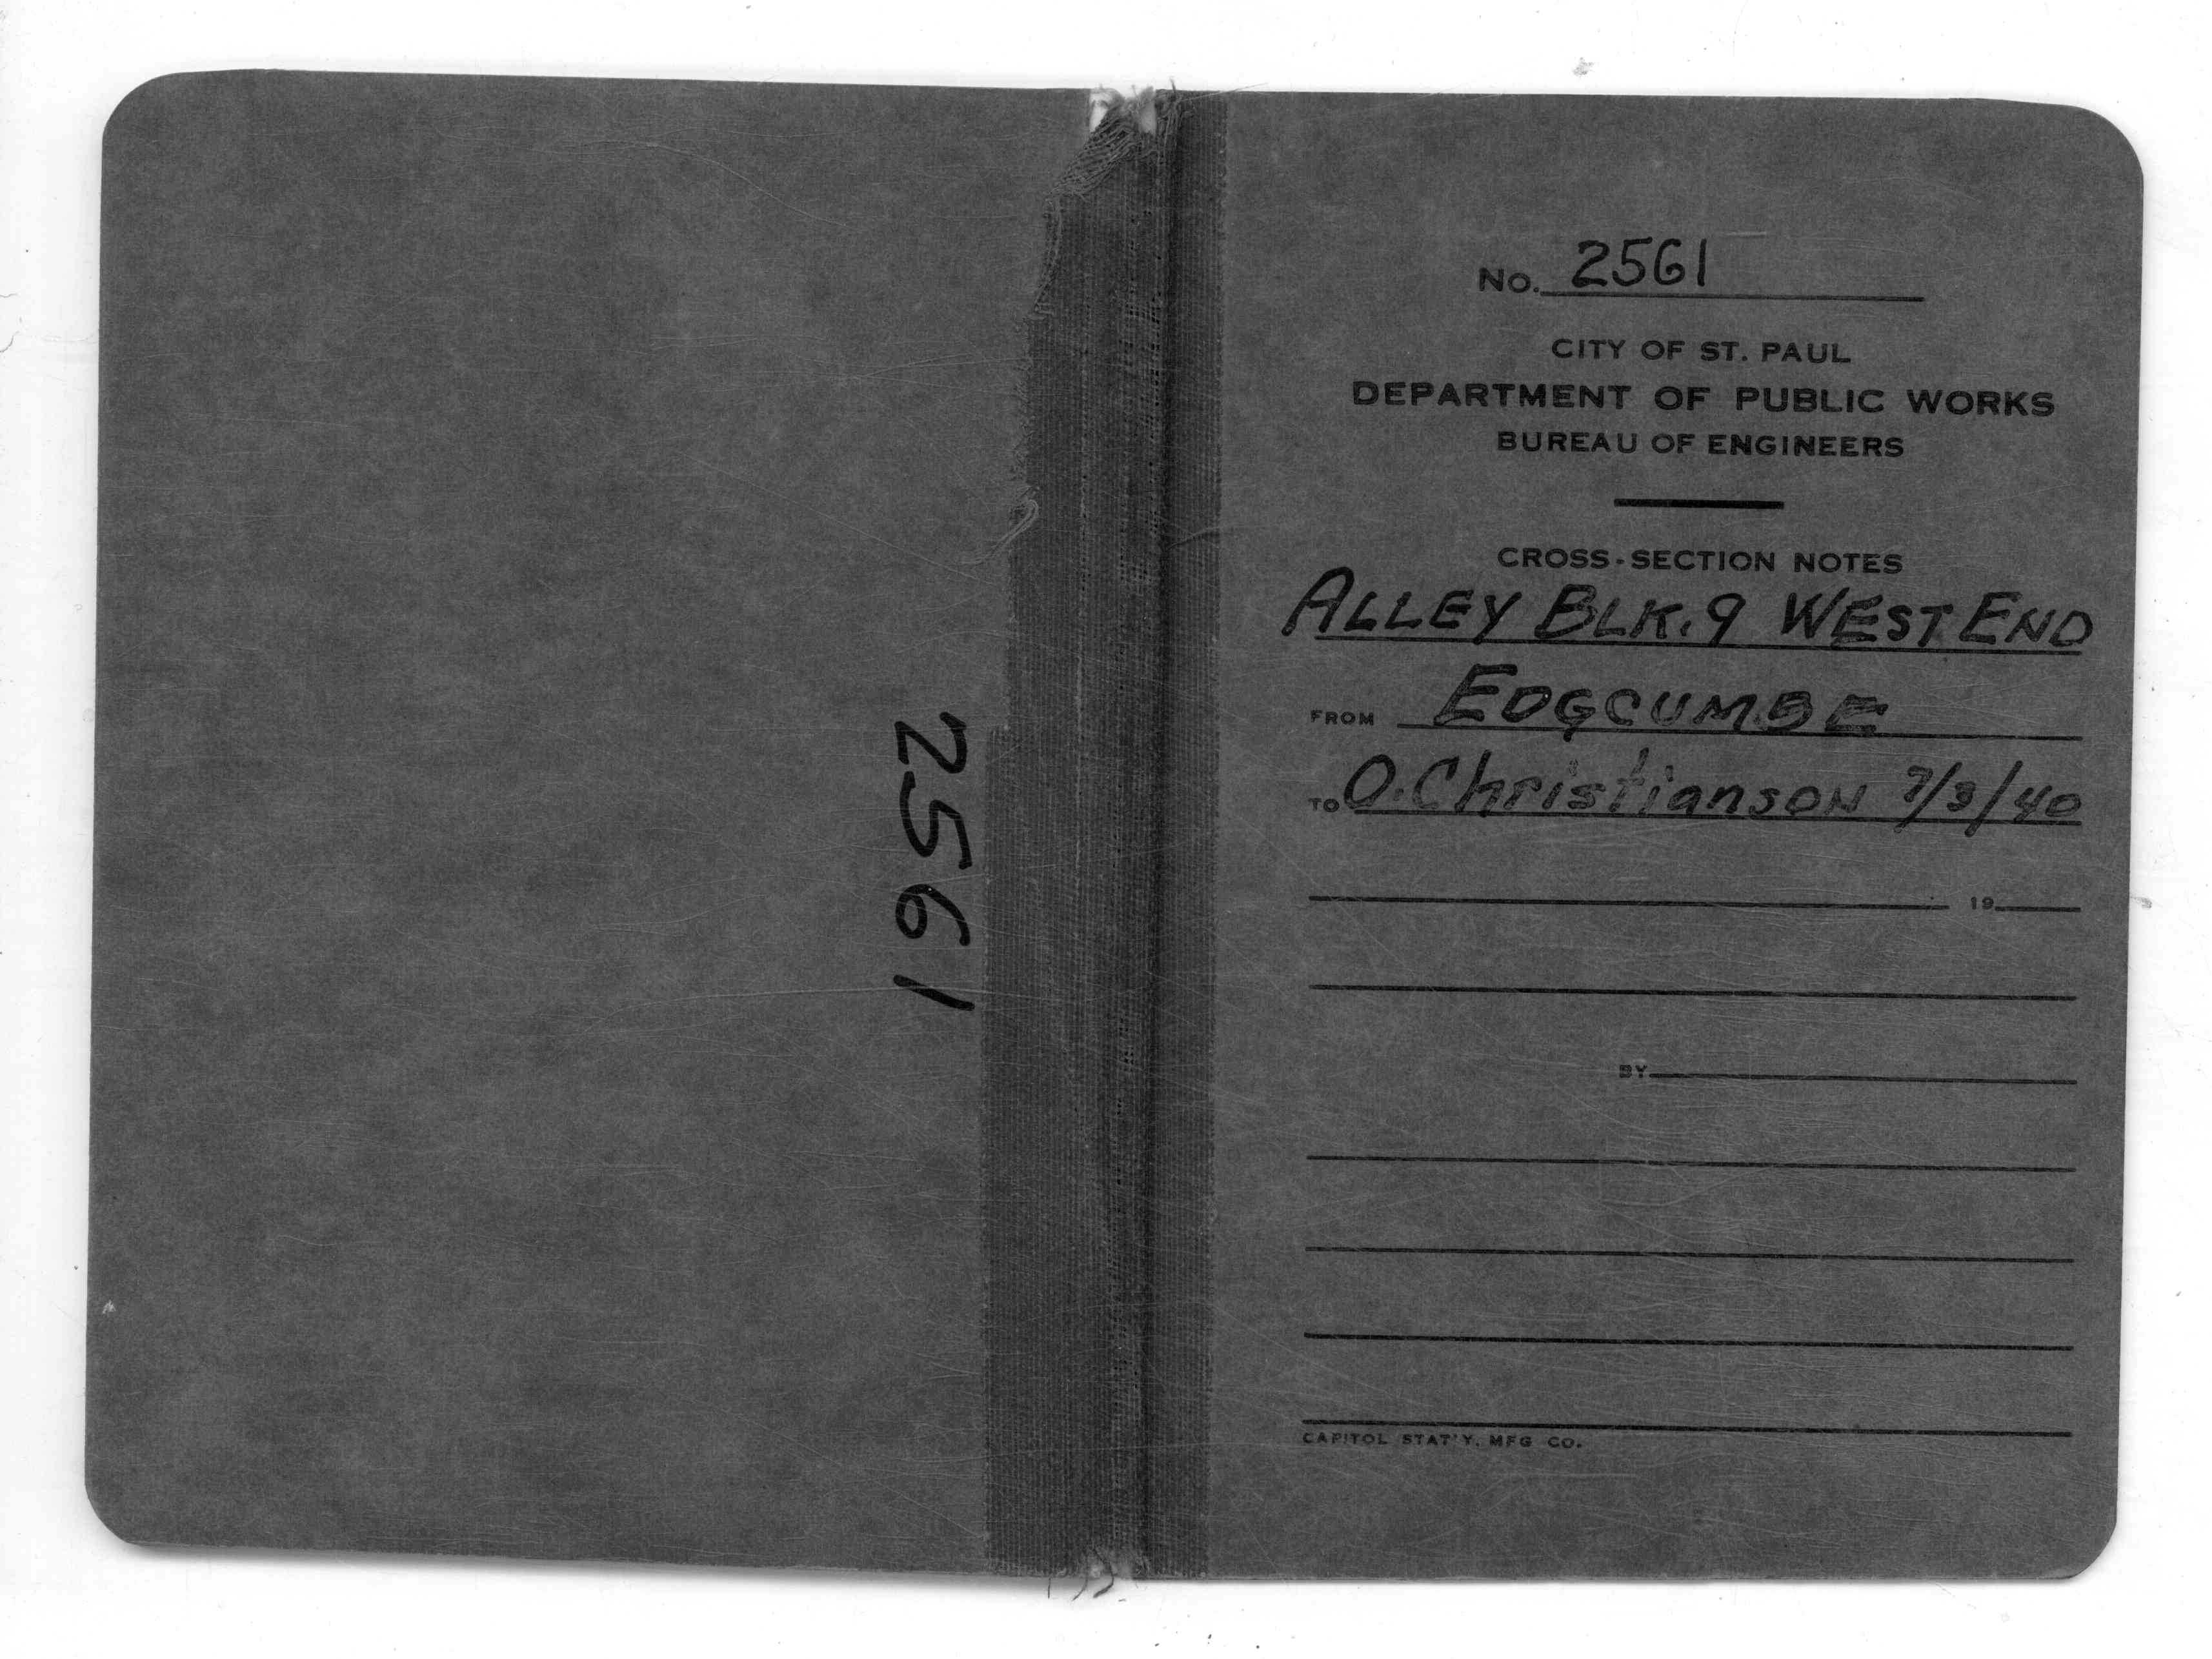 2561
No. 2561
CITY OF ST. PAUL
DEPARTMENT OF PUBLIC WORKS
BUREAU OF ENGINEERS
CROSS-SECTION NOTES
ALLEY BLK. 9 WEST END
FROM EDGCUMBE
TO O. Christianson 7/3/40
19
BY
CAPITOL STAT'Y. MFG CO.